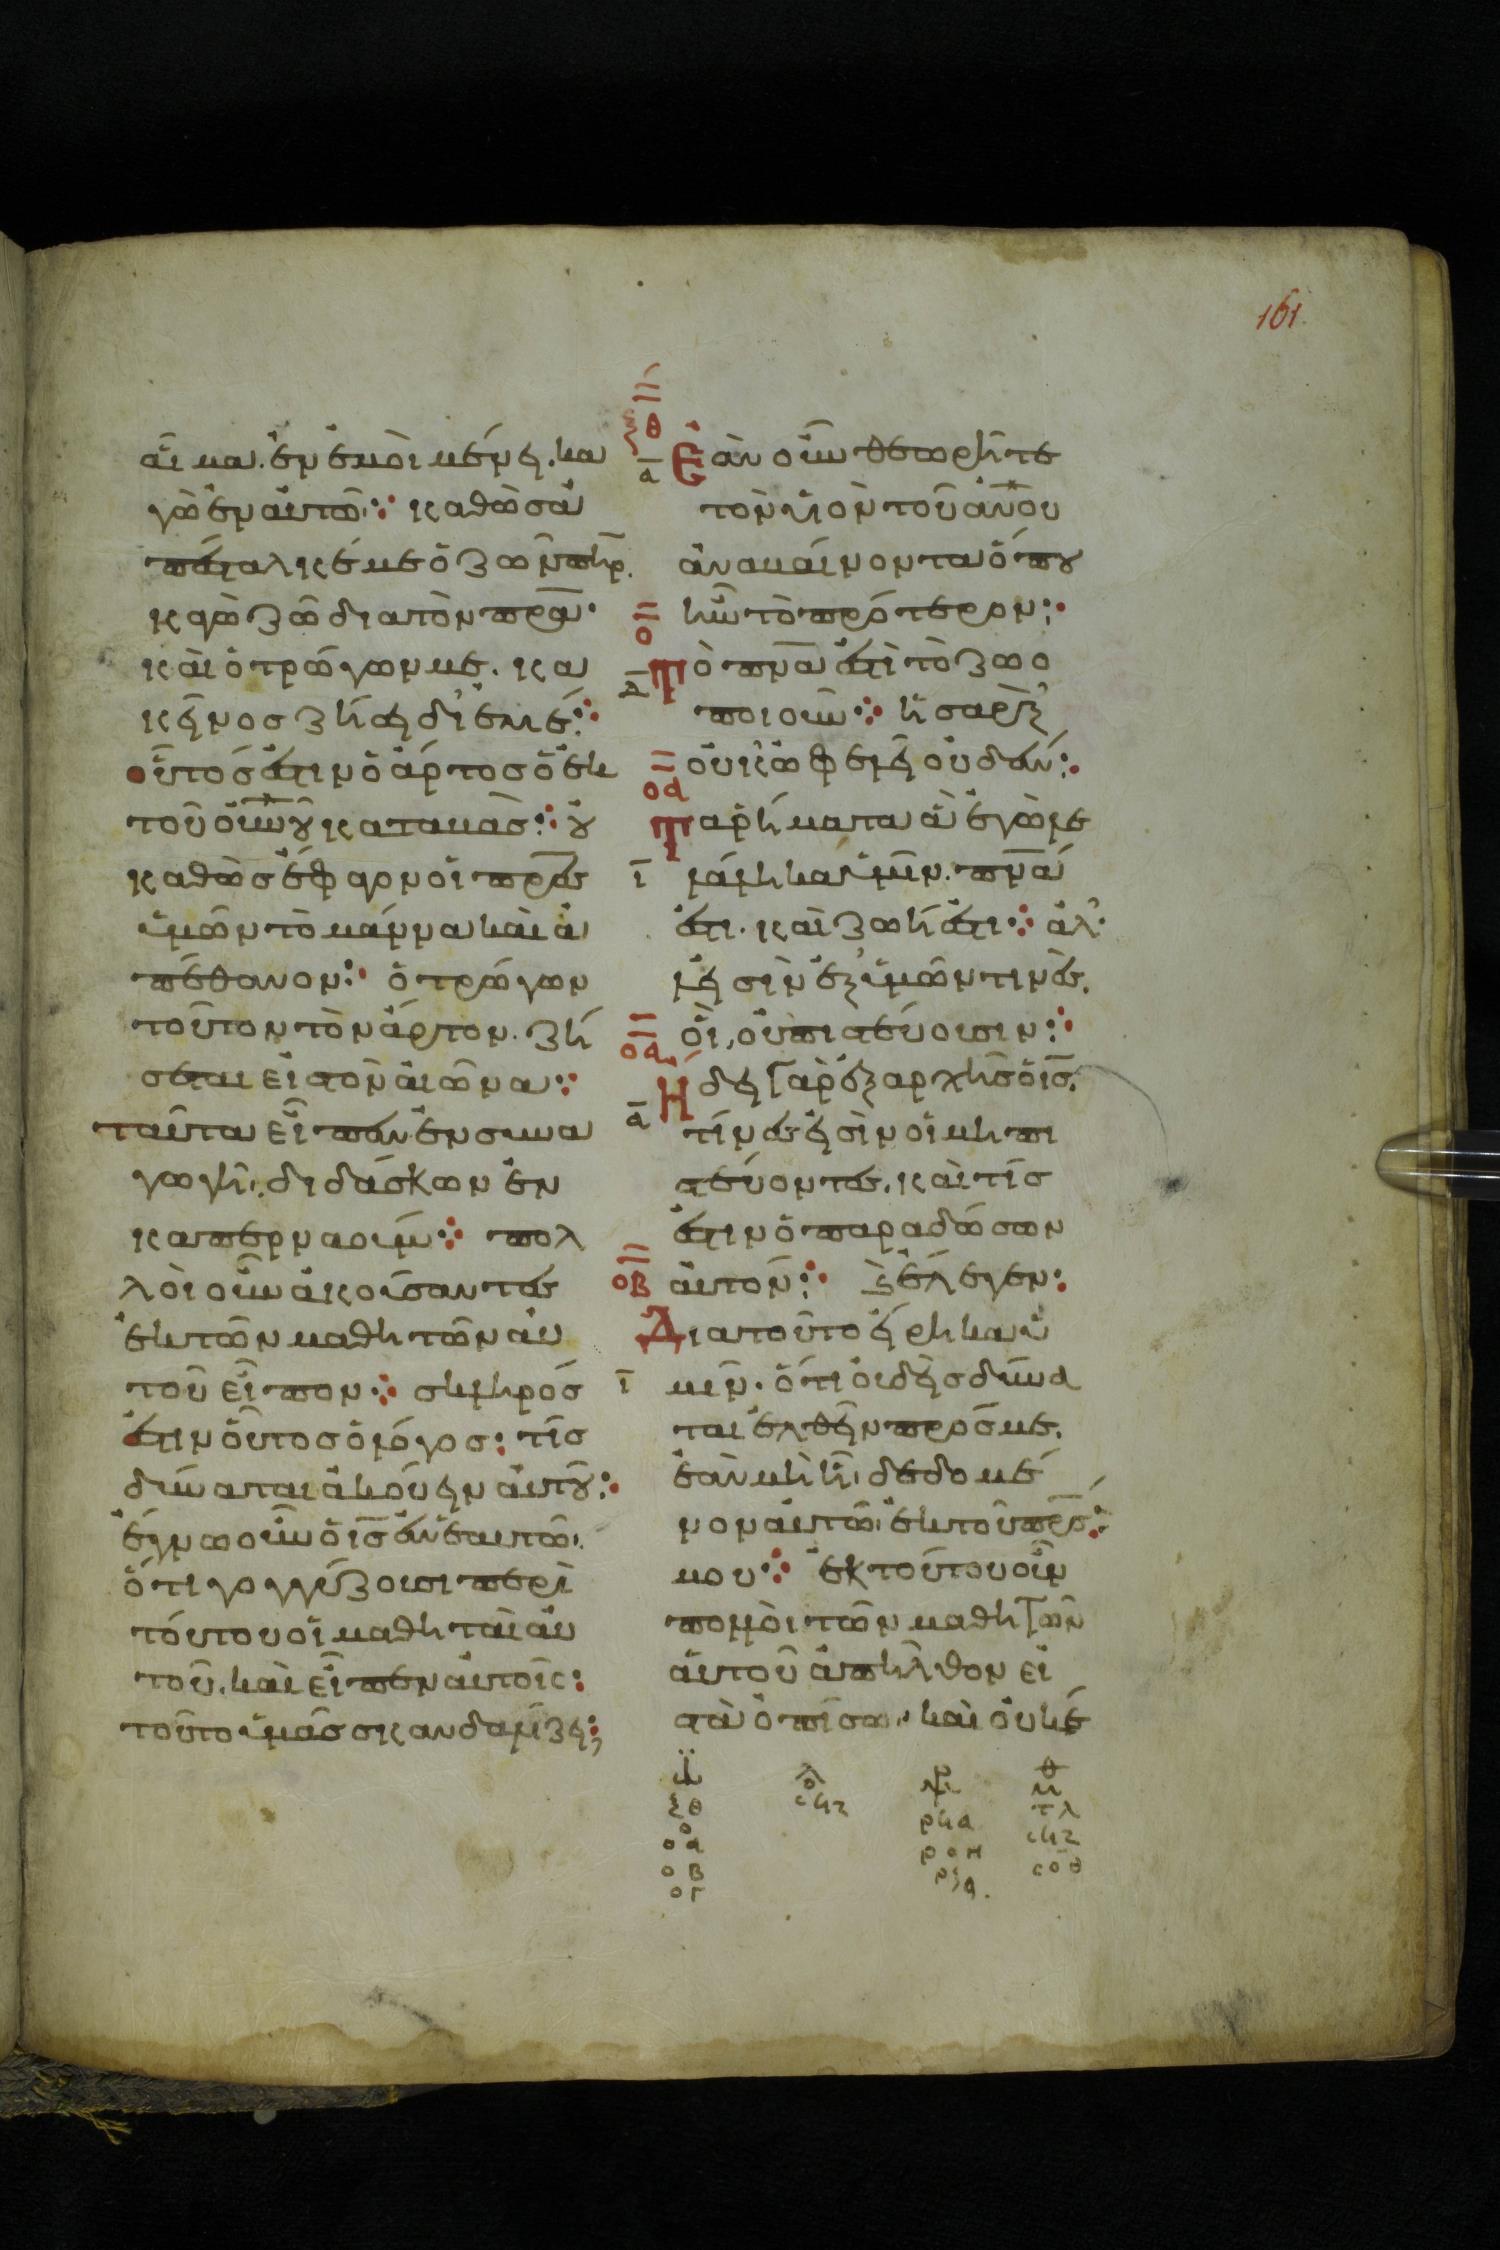 161
αἷμα. ἐν ἐμοὶ μένει. κα
γὼ ἐν αὐτῶ· καθὼσ ἀ
πέσταλκέ με ὁ ζῶν πηρ.
καγὼ ζῶ δια τὸν πρα·
καὶ ὁ τρώγων με. κα
κεῖνοσ ζήσει δι' ἐμέ·
οὗτόσ ἐστιν ὁ ἄρτοσ ὁ ἐκ
τοῦ οὐνου καταβάσ· οὐ
καθὼσ ἔφαγον οἱ πρεσ
ὑμῶν τὸ μάννα καὶ ἀ
πέθανον· ὁ τρώγων
τοῦτον τὸν ἄρτον. ζή
σεται εἰσ τὸν αἰῶνα·
ταῦτα εἶπεν ἐν συνα
γωγῆ. διδάσκων ἐν
καπερναούμ· πολ
λοὶ οὖν ἀκούσαντεσ
ἐκ τῶν μαθητῶν αὐ
τοῦ εἶπον· σκληρόσ
ἐστιν οὗτοσ ὁ λόγοσ: τίσ
δύναται ἀκούειν αὐτοῦ:
ἔγνω οὖν ὁ ισ ἐν ἑαυτῶ.
ὅτι γογγύζουσι περὶ
τούτου οἱ μαθηταὶ αὐ
τοῦ. καὶ εἶπεν αὐτοῖς:
τοῦτο ὑμᾶσ σκανδαλίζει;
ξθ
α
Ἐὰν οὖν θεωρῆτε
τὸν υἱὸν τοῦ ἀνου
ἀναβαίνοντα ὅπου
ἦν τὸ πρότερον·
ο
δ
Τὸ πνα ἐστὶ τὸ ζωο
ποιοῦν· ἡ σὰρξ
οὐκ ὠφελεῖ οὐδέν:
οα
Τὰ ῥήματα ἃ ἐγὼ λε
ι
λάληκα ὑμῖν. πνά
ἐστι. καὶ ζωή ἐστι· ἀλ'
εἰσὶν ἐξ ὑμῶν τινὲσ.
οἳ, οὐ πιστεύουσιν·
οα
α
Ηδει γὰρ ἐξαρχῆσ ὁ ισ.
τίνέσ εἰσὶν οἱ μὴ πι
στεύοντεσ. καὶ τίσ
ἐστιν ὁ παραδώσων
αὐτόν· ϗ ἔλεγεν:
οβ
Δια τοῦτο εἴρηκα ὑ
ι
μῖν. ὅτι οὐδεὶσ δύνα
ται ἐλθεῖν πρόσ με.
ἐὰν μὴ ῆ δεδομέ
νον αὐτῶ ἐκ τοῦ πρσ
μου· ἐκ τούτου οὖν
πολλοὶ τῶν μαθητῶν
αὐτοῦ ἀπῆλθον εἰσ
τὰ ὀπίσω. καὶ οὐκέ
ξθ
ο
οα
οβ
ογ
λο
ρκα
ροη
τλ
σοθ